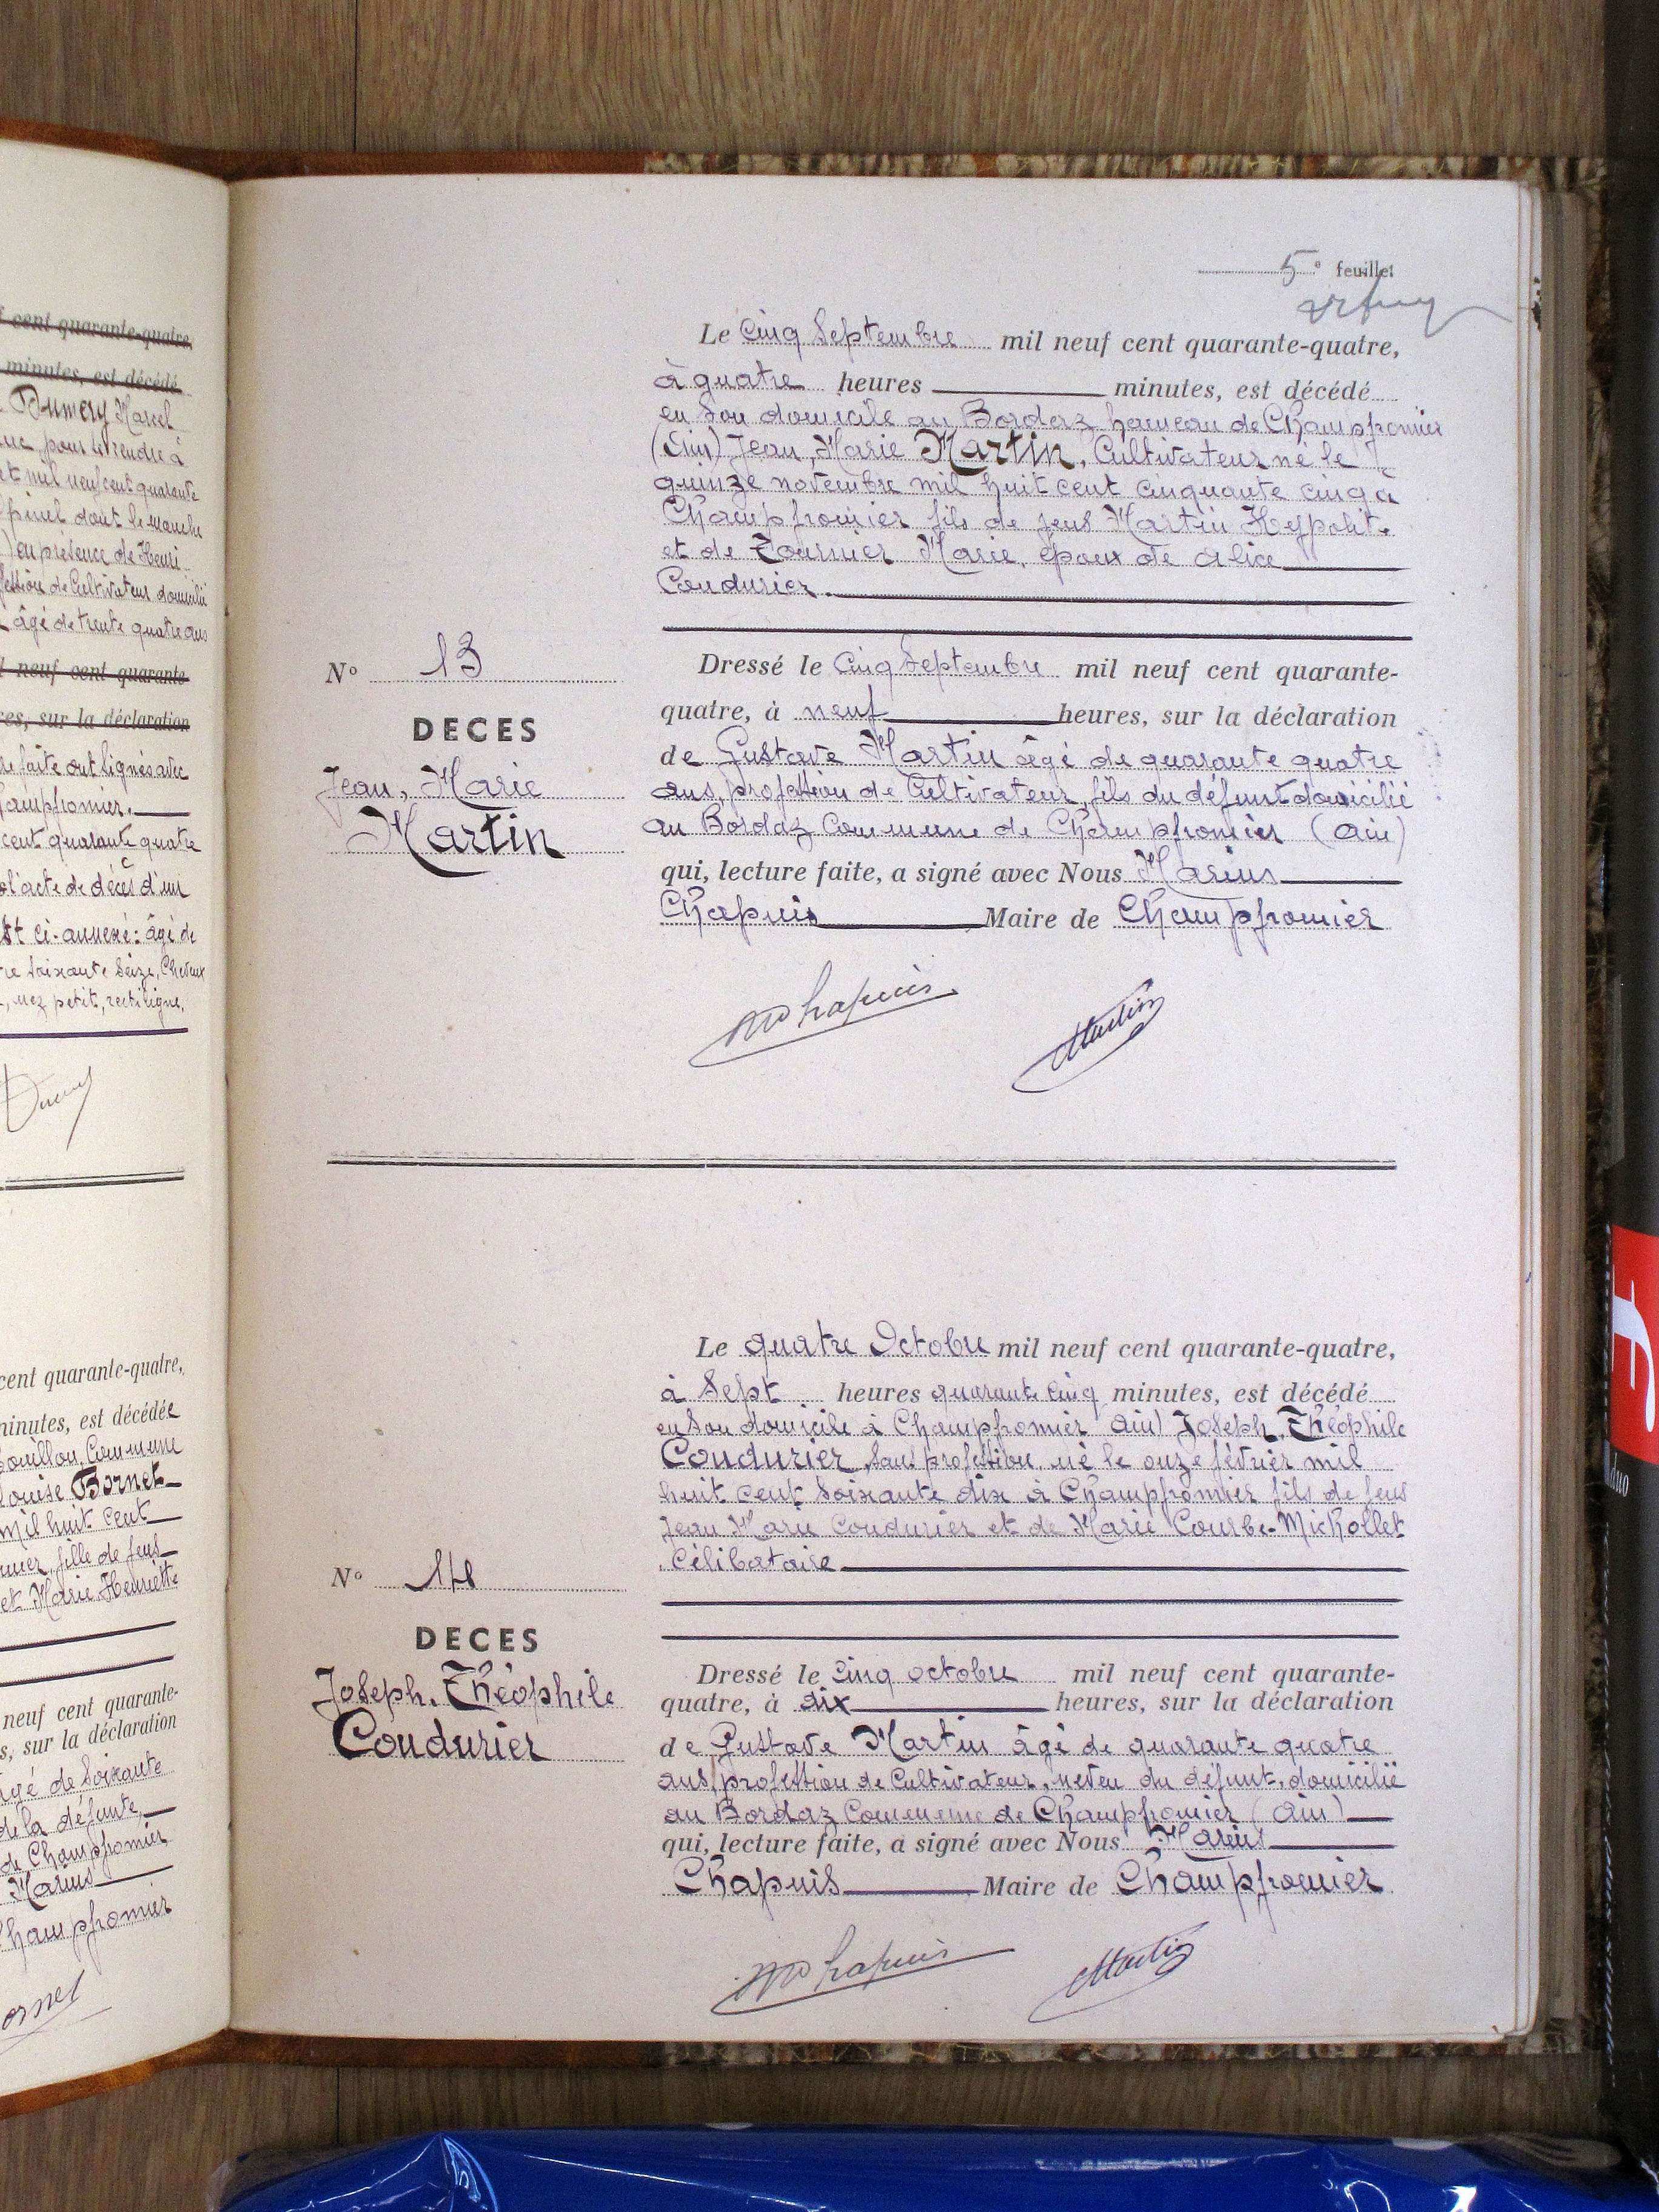 cent quarante-quatre,
minutes, est décédé
Dumery Marcel
pour se rendre à
et mil neuf cent quarante
dont le manche
en présence de Henri
de Cultivateur domicilié
âgé de trente quatre ans
neuf cent quarante
ces, sur la déclaration
faite ont signés avec
Champfromier.
cent quarante quatre
l'acte de décès d'un
st ci-annexé: âgé de
soixante seize, Cheveux
, nez petit, rectiligne.
cent quarante-quatre,
minutes, est décédée
Commune
Louise Bornet
mil huit cent
fille de feus
et Marie Henriette
neuf cent quarante-
s, sur la déclaration
âgé de soixante
de la défunte,
de Champfromier
Marius
Champfromier
5e feuillet
Le cinq Septembre mil neuf cent quarante-quatre,
à quatre heures minutes, est décédé
en son domicile au Bordaz hameau de Champfromier
(Ain) Jean, Marie Martin, Cultivateur né le
quinze novembre mil huit cent cinquante cinq à
Champfromier fils de feus Martin Hypolite
et de Tournier Marie, époux de Alice
Coudurier.
N° 13
DECES
Jean, Marie
Martin
Dressé le cinq Septembre mil neuf cent quarante-
quatre, à neuf heures, sur la déclaration
de Gustave Martin âgé de quarante quatre
ans, profession de Cultivateur, fils du défunt domicilié
au Bordaz Commune de Champfromier (Ain)
qui, lecture faite, a signé avec Nous Marius
Chapuis Maire de Champfromier
M Chapuis Martin
Le quatre Octobre mil neuf cent quarante-quatre,
à Sept heures quarante cinq minutes, est décédé
en son domicile à Champfromier Ain) Joseph, Théophile
Coudurier, sans profession, né le onze février mil
huit cent soixante dix à Champfromier fils de feus
Jean Marie Coudurier et de Marie Courbe-Michollet
Célibataire
N° 14
DECES
Joseph, Théophile
Coudurier
Dressé le cinq octobre mil neuf cent quarante-
quatre, à dix heures, sur la déclaration
de Gustave Martin âgé de quarante quatre
ans, profession de Cultivateur, neveu du défunt, domicilié
au Bordaz Commune de Champfromier (Ain)
qui, lecture faite, a signé avec Nous Marius
Chapuis Maire de Champfromier
M Chapuis Martin
duo